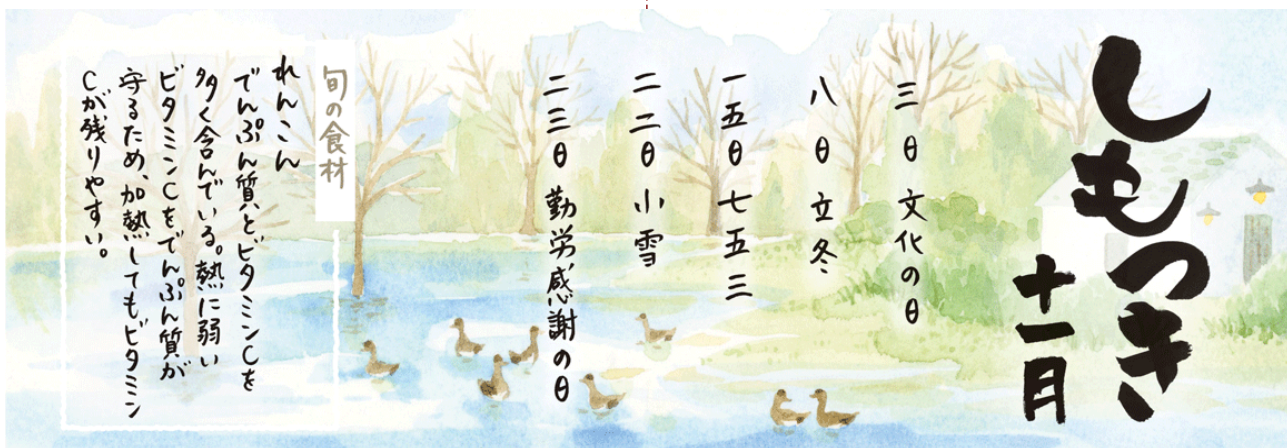 しもつき
十一月
三日 文化の日
八日 立冬
一五日 七五三
二二日 小雪
二三日 勤労感謝の日
旬の食材
れんこん
でんぷん質とビタミンCを
多く含んでいる。熱に弱い
ビタミンCをでんぷん質が
守るため、加熱してもビタミン
Cが残りやすい。